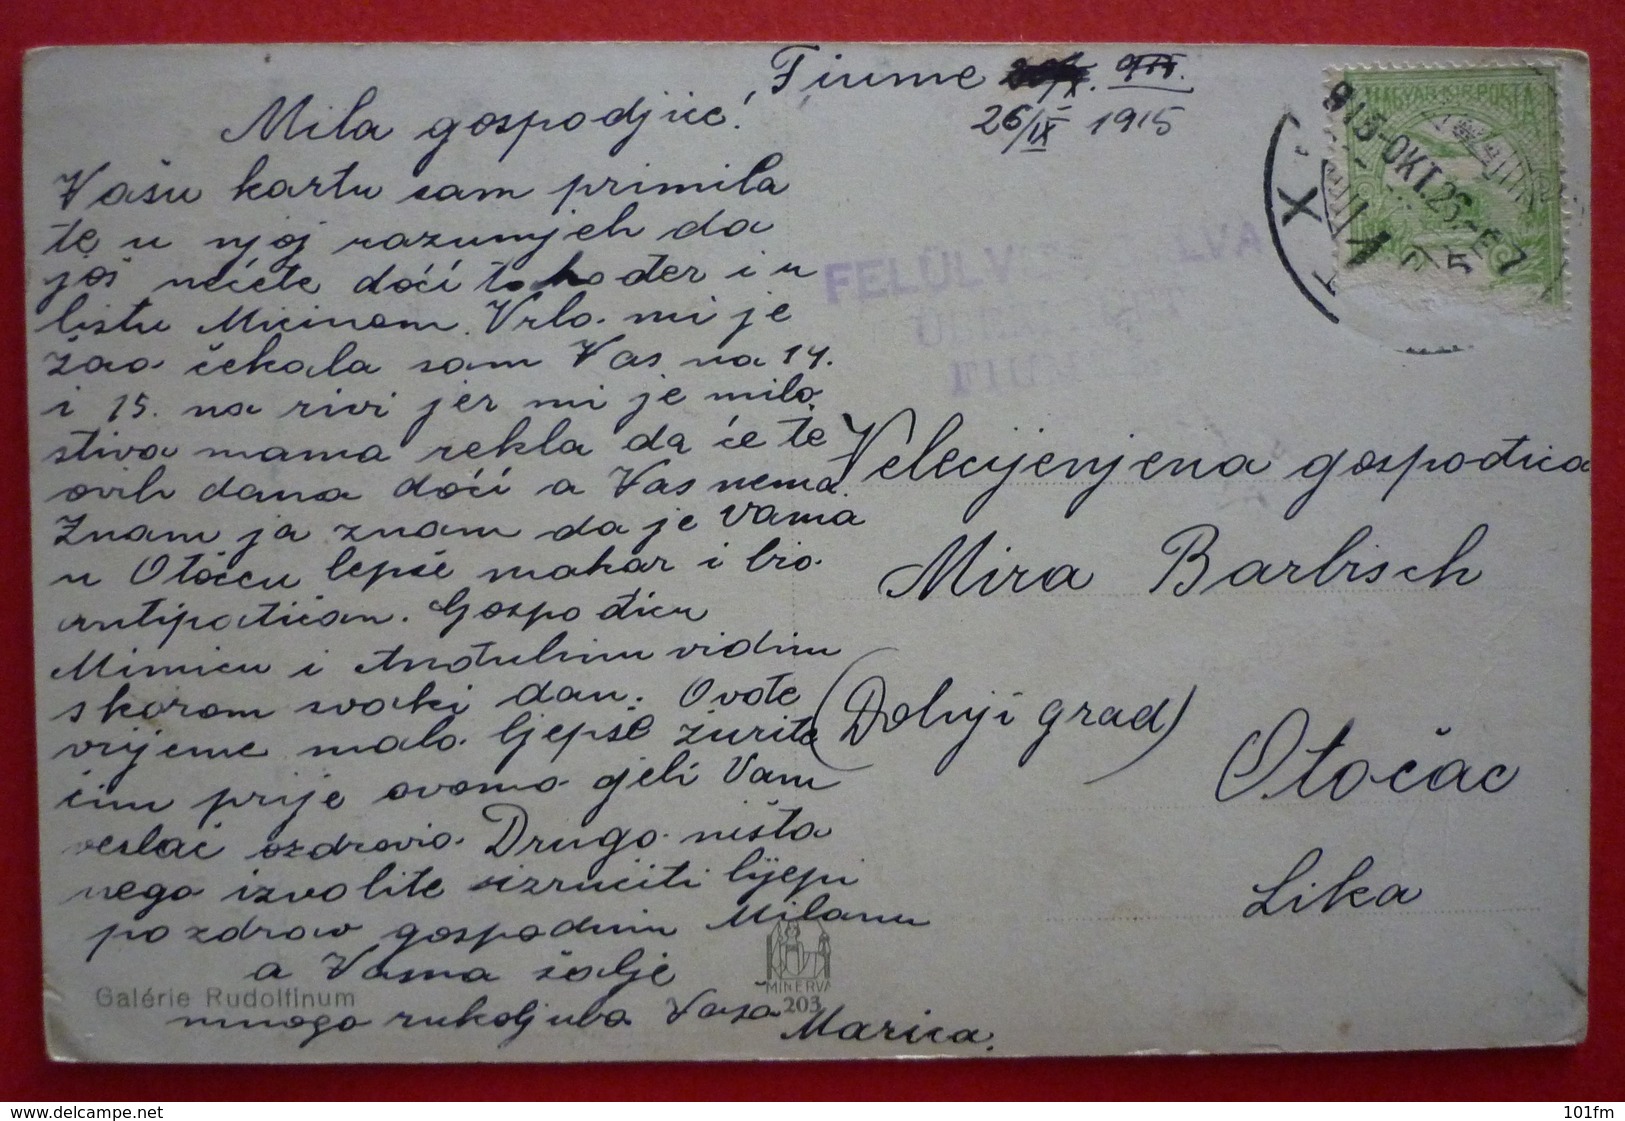 Fiume
26/IX 1915
Mila gospodjice!
Vašu kartu sam primila
te u njoj razumjeh da
još nećete doći također i u
listu Micinom. Vrlo mi je
žao čekala sam Vas na 14.
i 15. na rivi jer mi je milo
stiva mama rekla da će te
ovih dana doći a Vas nema.
Znam ja znam da je Vama
u Otočcu lepše makar i bio
antipatičan. Gospođicu
Mimicu i Anđulinu vidim
skorom svaki dan. Ovđe
vrijeme malo ljepše žurite
čim prije ovamo
ozdravio. Drugo ništa
nego izvolite izručiti lijepi
pozdrav gospodinu Milanu
a Vama šalje
mnogo rukoljuba Vaša Marica.
FELÜLV LVA
FIUM
MAGYAR KIR. POSTA
915-OKT. 26
Velecijenjena gospođica
Mira Barbisch
(Dolnji grad)
Otočac
Lika
Galérie Rudolfinum
MINERVA
203
delcampe.net
101fm